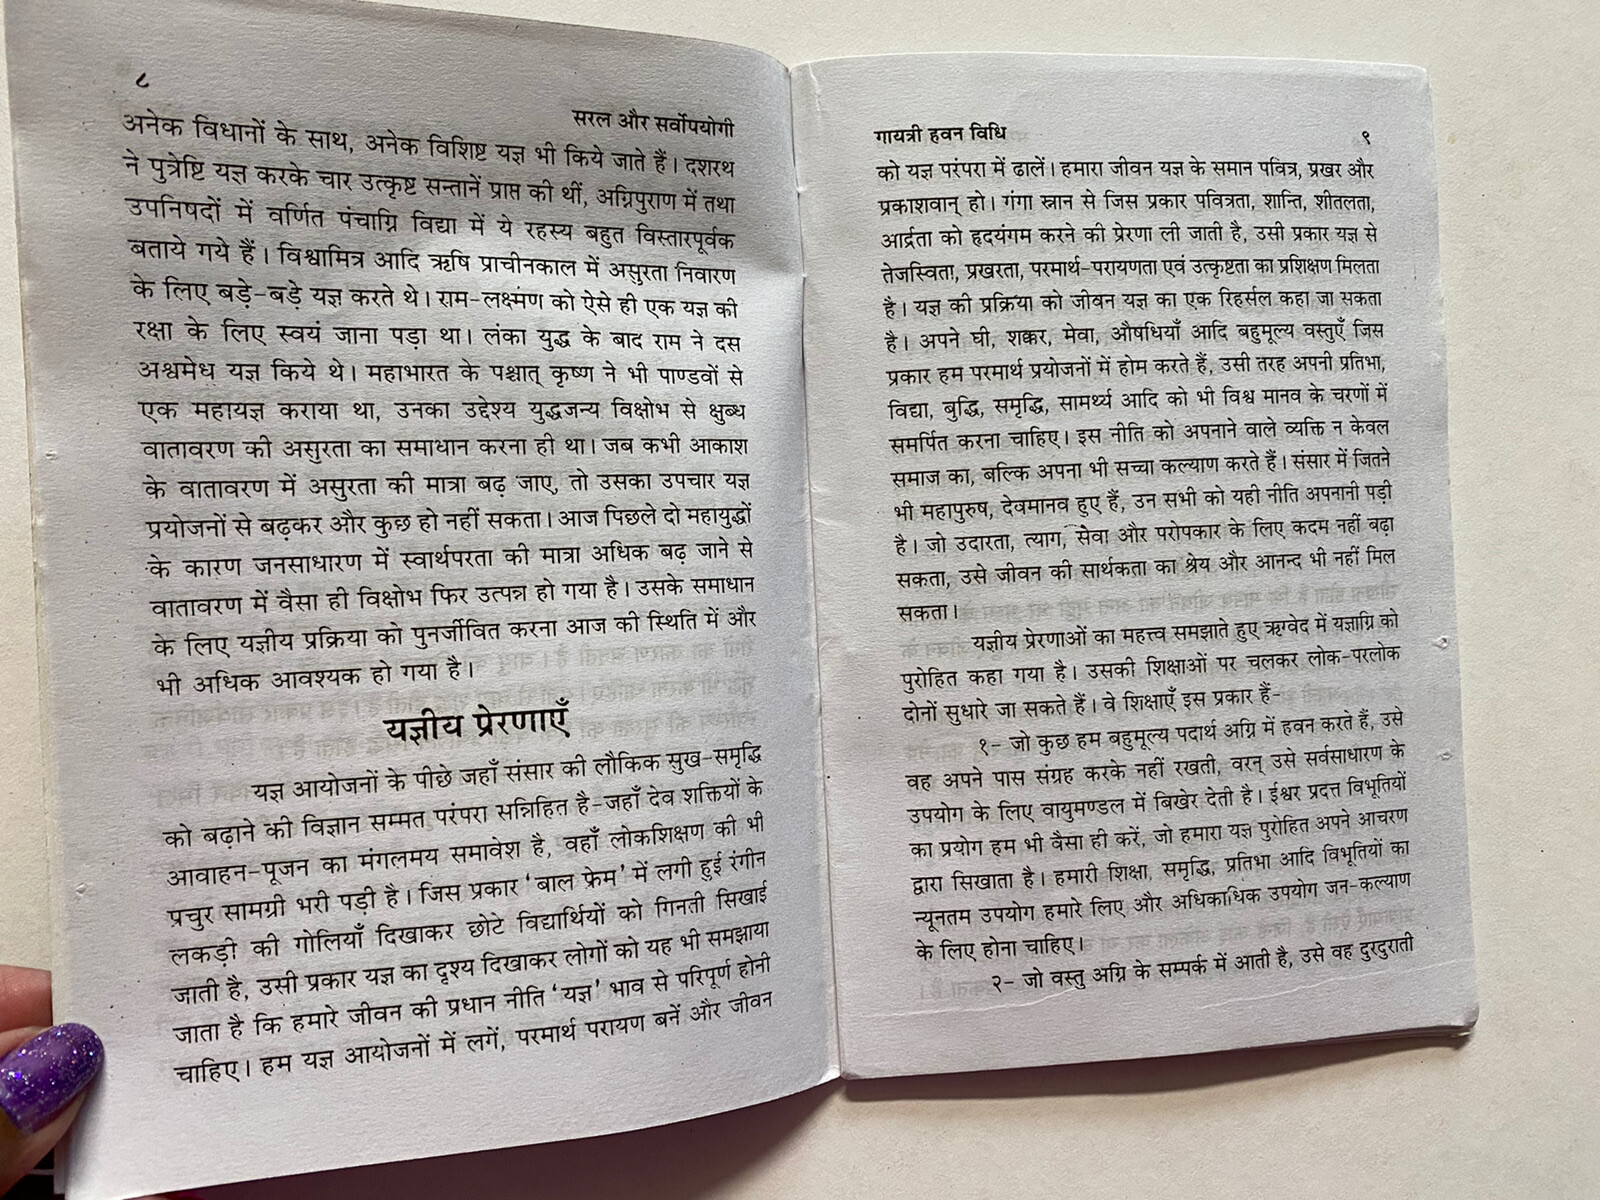 ८
सरल और सर्वोपयोगी
अनेक विधानों के साथ, अनेक विशिष्ट यज्ञ भी किये जाते हैं। दशरथ
ने पुत्रेष्टि यज्ञ करके चार उत्कृष्ट सन्तानें प्राप्त की थीं, अग्निपुराण में तथा
उपनिषदों में वर्णित पंचाग्नि विद्या में ये रहस्य बहुत विस्तारपूर्वक
बताये गये हैं। विश्वामित्र आदि ऋषि प्राचीनकाल में असुरता निवारण
के लिए बड़े-बड़े यज्ञ करते थे। राम-लक्ष्मण को ऐसे ही एक यज्ञ की
रक्षा के लिए स्वयं जाना पड़ा था। लंका युद्ध के बाद राम ने दस
अश्वमेध यज्ञ किये थे। महाभारत के पश्चात् कृष्ण ने भी पाण्डवों से
एक महायज्ञ कराया था, उनका उद्देश्य युद्धजन्य विक्षोभ से क्षुब्ध
वातावरण की असुरता का समाधान करना ही था। जब कभी आकाश
के वातावरण में असुरता की मात्रा बढ़ जाए, तो उसका उपचार यज्ञ
प्रयोजनों से बढ़कर और कुछ हो नहीं सकता। आज पिछले दो महायुद्धों
के कारण जनसाधारण में स्वार्थपरता की मात्रा अधिक बढ़ जाने से
वातावरण में वैसा ही विक्षोभ फिर उत्पन्न हो गया है। उसके समाधान
के लिए यज्ञीय प्रक्रिया को पुनर्जीवित करना आज की स्थिति में और
भी अधिक आवश्यक हो गया है।
यज्ञीय प्रेरणाएँ
यज्ञ आयोजनों के पीछे जहाँ संसार की लौकिक सुख-समृद्धि
को बढ़ाने की विज्ञान सम्मत परंपरा सन्निहित है-जहाँ देव शक्तियों के
आवाहन-पूजन का मंगलमय समावेश है, वहाँ लोकशिक्षण की भी
प्रचुर सामग्री भरी पड़ी है। जिस प्रकार 'बाल फ्रेम' में लगी हुई रंगीन
लकड़ी की गोलियाँ दिखाकर छोटे विद्यार्थियों को गिनती सिखाई
जाती है, उसी प्रकार यज्ञ का दृश्य दिखाकर लोगों को यह भी समझाया
जाता है कि हमारे जीवन की प्रधान नीति 'यज्ञ' भाव से परिपूर्ण होनी
चाहिए। हम यज्ञ आयोजनों में लगें, परमार्थ परायण बनें और जीवन
गायत्री हवन विधि
९
को यज्ञ परंपरा में ढालें। हमारा जीवन यज्ञ के समान पवित्र, प्रखर और
प्रकाशवान् हो। गंगा स्नान से जिस प्रकार पवित्रता, शान्ति, शीतलता,
आर्द्रता को हृदयंगम करने की प्रेरणा ली जाती है, उसी प्रकार यज्ञ से
तेजस्विता, प्रखरता, परमार्थ-परायणता एवं उत्कृष्टता का प्रशिक्षण मिलता
है। यज्ञ की प्रक्रिया को जीवन यज्ञ का एक रिहर्सल कहा जा सकता
है। अपने घी, शक्कर, मेवा, औषधियाँ आदि बहुमूल्य वस्तुएँ जिस
प्रकार हम परमार्थ प्रयोजनों में होम करते हैं, उसी तरह अपनी प्रतिभा,
विद्या, बुद्धि, समृद्धि, सामर्थ्य आदि को भी विश्व मानव के चरणों में
समर्पित करना चाहिए। इस नीति को अपनाने वाले व्यक्ति न केवल
समाज का, बल्कि अपना भी सच्चा कल्याण करते हैं। संसार में जितने
भी महापुरुष, देवमानव हुए हैं, उन सभी को यही नीति अपनानी पड़ी
है। जो उदारता, त्याग, सेवा और परोपकार के लिए कदम नहीं बढ़ा
सकता, उसे जीवन की सार्थकता का श्रेय और आनन्द भी नहीं मिल
सकता।
यज्ञीय प्रेरणाओं का महत्त्व समझाते हुए ऋग्वेद में यज्ञाग्नि को
पुरोहित कहा गया है। उसकी शिक्षाओं पर चलकर लोक-परलोक
दोनों सुधारे जा सकते हैं। वे शिक्षाएँ इस प्रकार हैं-
१- जो कुछ हम बहुमूल्य पदार्थ अग्नि में हवन करते हैं, उसे
वह अपने पास संग्रह करके नहीं रखती, वरन् उसे सर्वसाधारण के
उपयोग के लिए वायुमण्डल में बिखेर देती है। ईश्वर प्रदत्त विभूतियों
का प्रयोग हम भी वैसा ही करें, जो हमारा यज्ञ पुरोहित अपने आचरण
द्वारा सिखाता है। हमारी शिक्षा, समृद्धि, प्रतिभा आदि विभूतियों का
न्यूनतम उपयोग हमारे लिए और अधिकाधिक उपयोग जन-कल्याण
के लिए होना चाहिए।
२- जो वस्तु अग्नि के सम्पर्क में आती है, उसे वह दुरदुराती